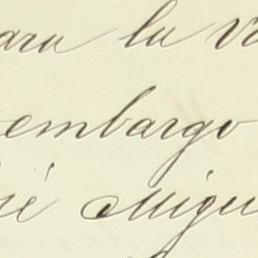 ara la va
embargo
sé Migu